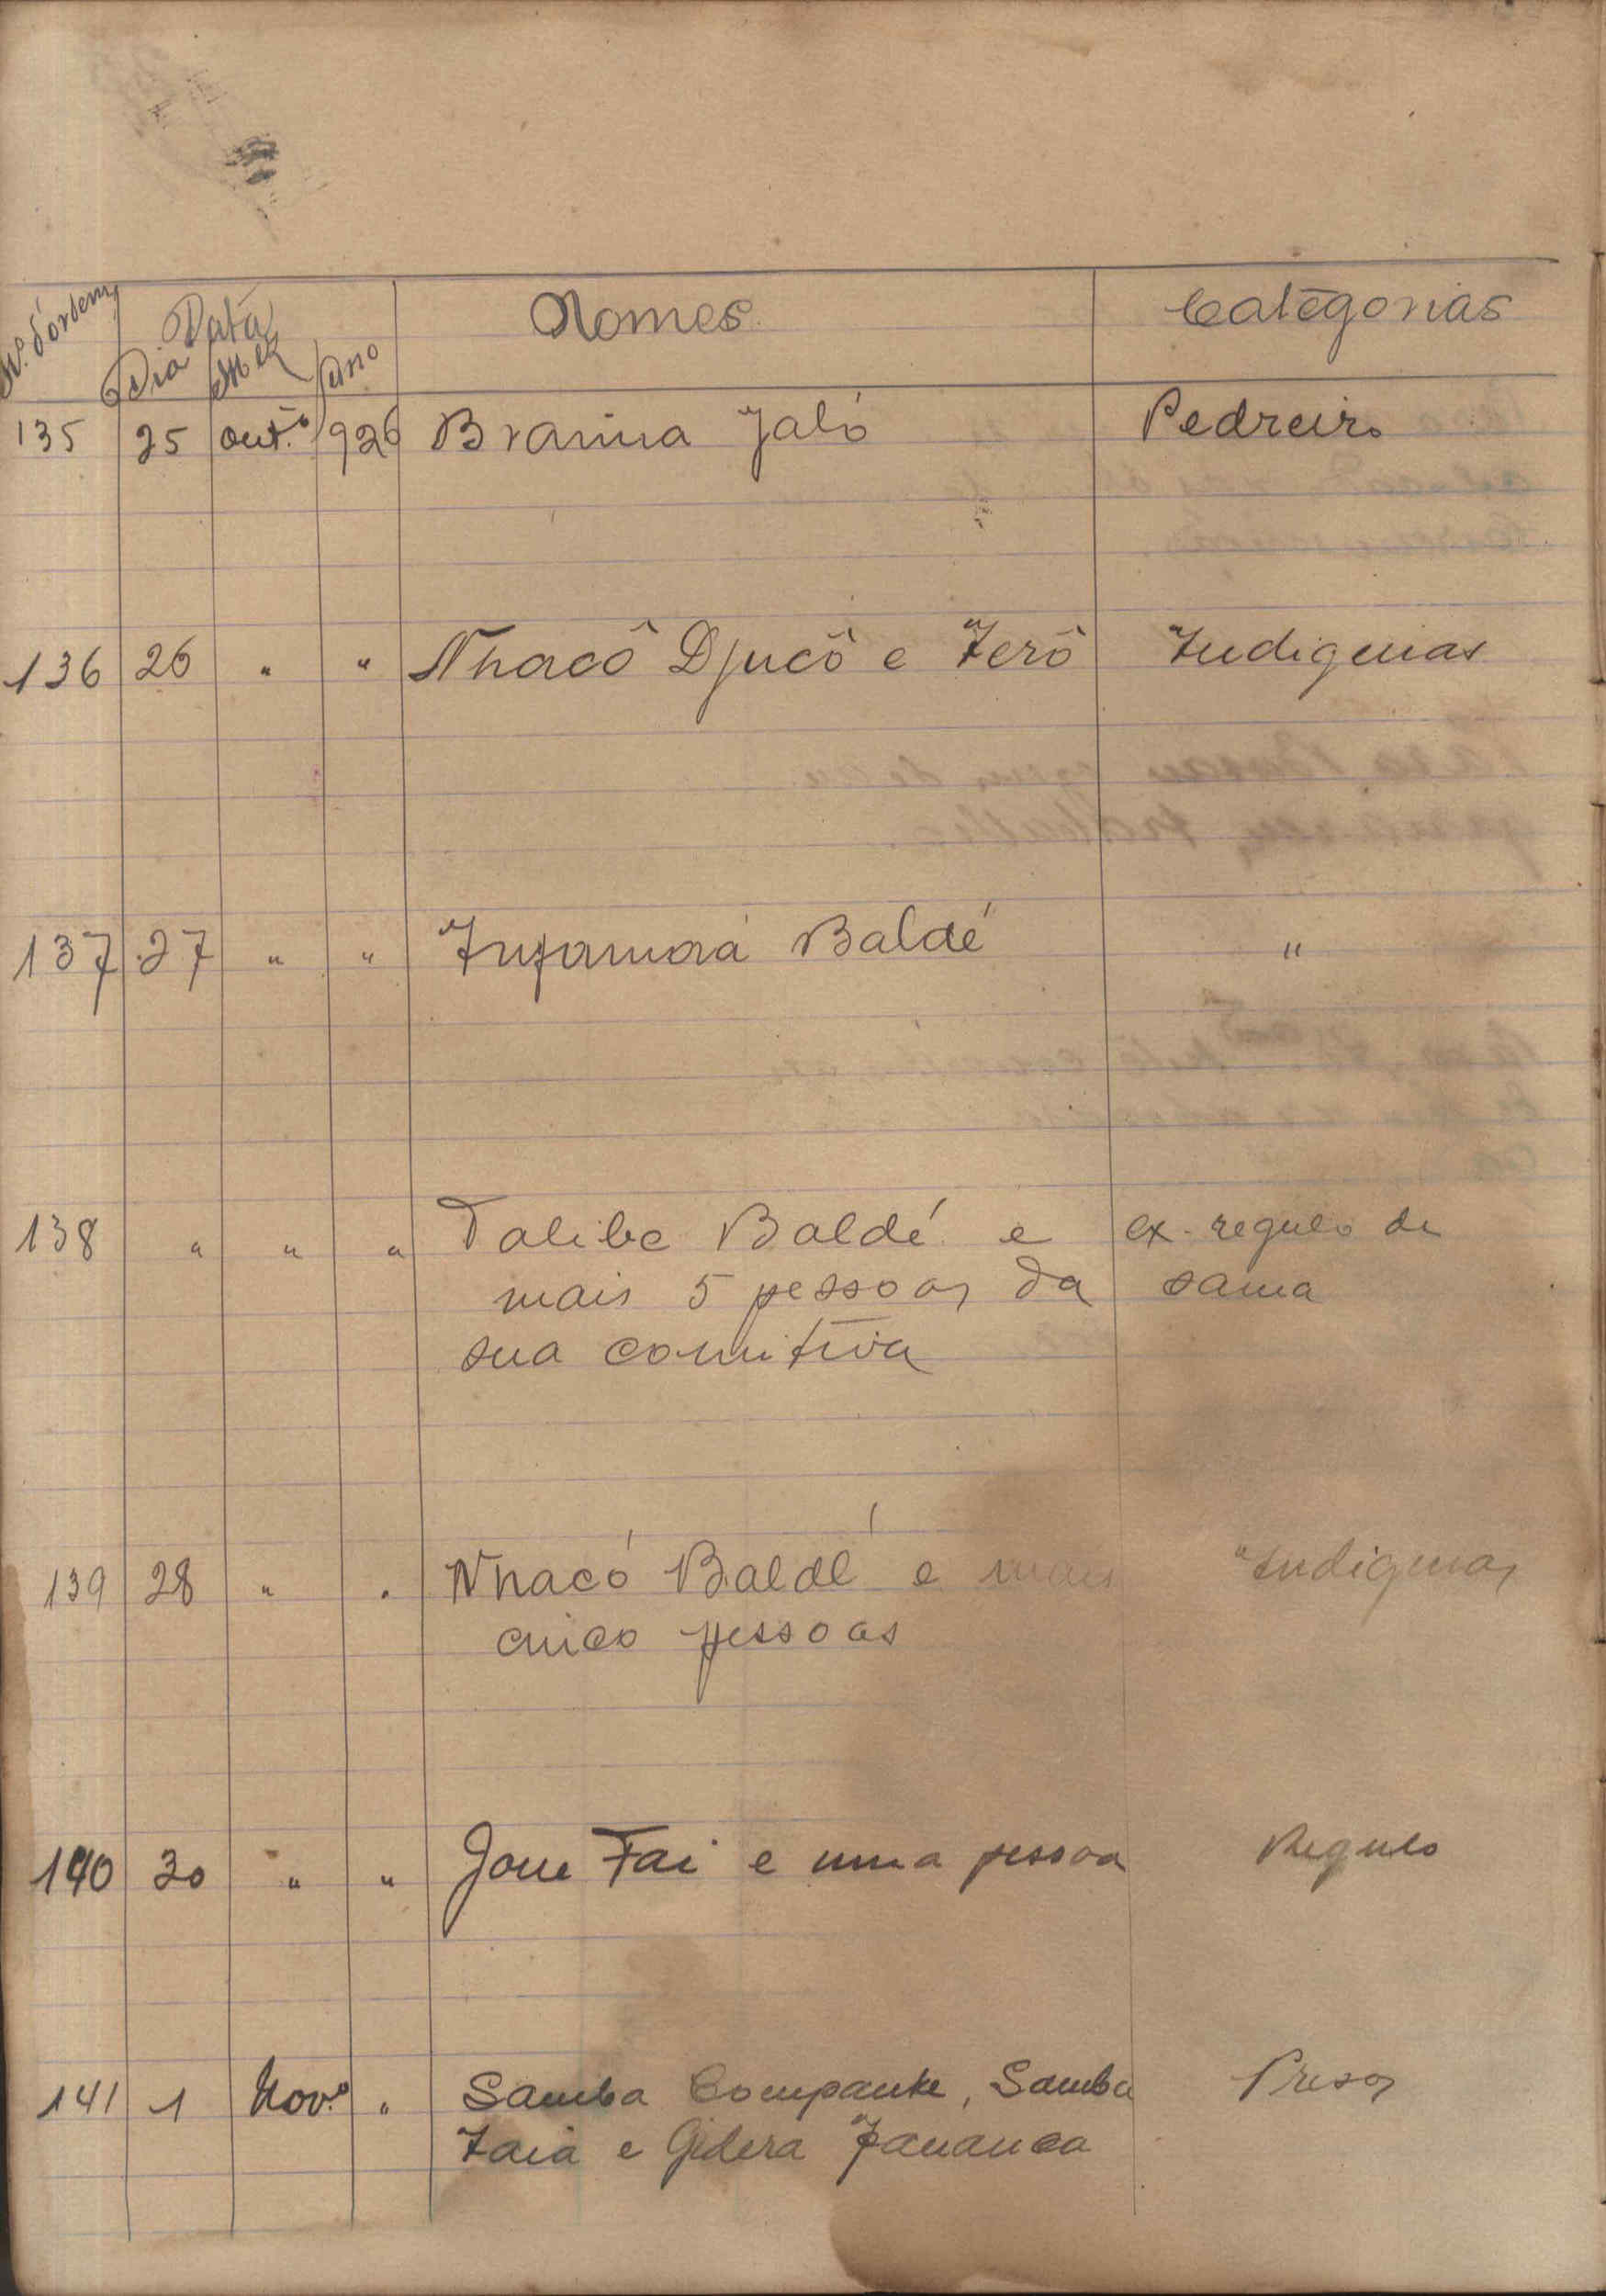 Nº d'ordem Data Nomes Categorias
Dia Mez Ano
135 25 Outº 926 Braima Jaló Pedreiro
136 26 " " Nhacô Djucô e Ierô Indigenas
137 27 " " Infamará Baldé "
138 " " " Talibe Baldé e ex-regulo de
mais 5 pessoas da sama
sua comitiva
139 28 " " Nhacó Baldé e mais Indigenas
cinco pessoas
140 30 " " Jone Fai e uma pessoa Regulo
141 1 Novº " Samba Companke, Samba Presos
Iaia e Gidera